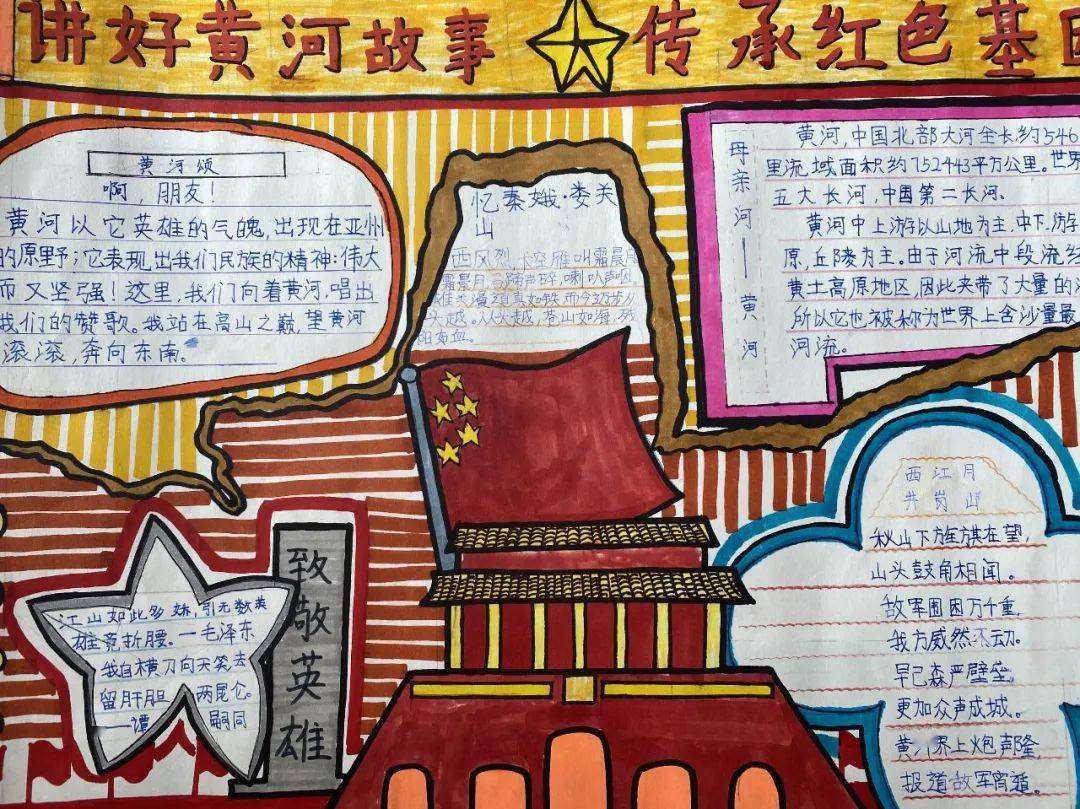 讲好黄河故事 传承红色基因
黄河颂
啊，朋友！
黄河以它英雄的气魄，出现在亚洲
的原野；它表现出我们民族的精神：伟大
而又坚强！这里，我们向着黄河，唱出
我们的赞歌。我站在高山之巅，望黄河
滚滚，奔向东南。
忆秦娥·娄关
山
西风烈，长空雁叫霜晨月
霜晨月，马蹄声碎，喇叭声咽
雄关漫道真如铁，而今迈步从
头越。从头越，苍山如海，残
阳如血。
母亲河——黄河
黄河，中国北部大河全长约546
里流域面积约752443平方公里。世界
五大长河，中国第二长河。
黄河中上游以山地为主，中下游
原，丘陵为主。由于河流中段流经
黄土高原地区，因此夹带了大量的
所以它也被称为世界上含沙量最
河流。
江山如此多娇，引无数英
雄竞折腰。一毛泽东
我自横刀向天笑去
留肝胆两昆仑。
——谭嗣同
致敬英雄
西江月
井岗山
山下旌旗在望，
山头鼓角相闻。
敌军围困万千重，
我方威然不动。
早已森严壁垒，
更加众声成城。
黄 界上炮声隆，
报道敌军宵遁。